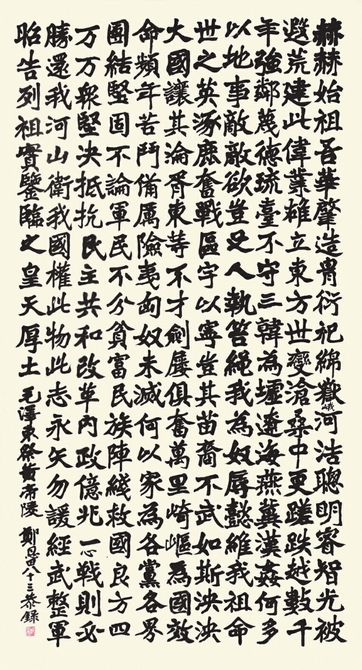 赫赫始祖吾華肇造冑衍祀綿嶽峨河浩聰明睿智光被
遐荒建此偉業雄立東方世變滄桑中更蹉跌越數千
年強鄰蔑德琉臺不守三韓為墟遼海燕冀漢姦何多
以地事敵敵欲豈足人執笞繩我為奴辱懿維我祖命
世之英涿鹿奮戰區宇以寧豈其苗裔不武如斯泱泱
大國讓其淪胥東等不才劍屨俱奮萬里崎嶇為國效
命頻年苦鬥備厲險夷匈奴未滅何以家為各黨各界
團結堅固不論軍民不分貧富民族陣綫救國良方四
万万衆堅決抵抗民主共和改革內政億兆一心戰則必
勝還我河山衛我國權此物此志永矢勿諼經武整軍
昭告列祖實鑒臨之皇天厚土 毛澤東祭黃帝陵 鄭 八十三恭錄